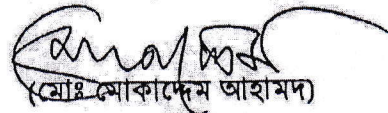 (মোঃ মোকাদ্দেম আহামদ)